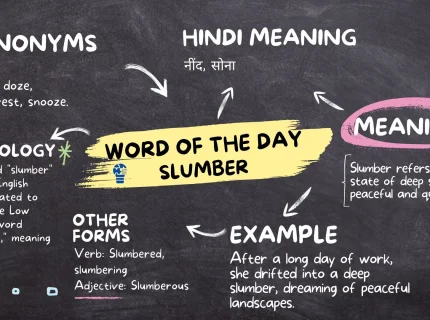 NONYMS
doze,
rest, snooze.
HINDI MEANING
नींद, सोना
MEANI
Slumber refers
state of deep s
peaceful and qu
WORD OF THE DAY
SLUMBER
OLOGY
"slumber"
nglish
ated to
e Low
word
," meaning
OTHER
FORMS
Verb: Slumbered,
slumbering
Adjective: Slumberous
EXAMPLE
After a long day of work,
she drifted into a deep
slumber, dreaming of peaceful
landscapes.